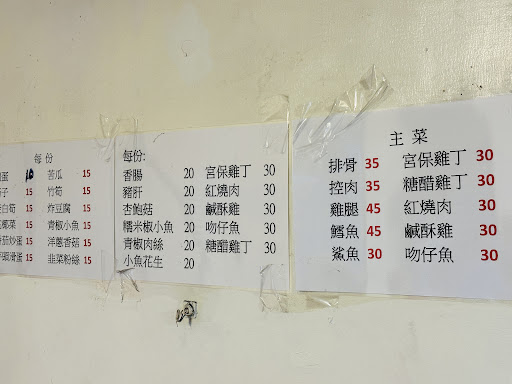 每 份
蛋 10 苦瓜 15
子 15 竹筍 15
白筍 15 炸豆腐 15
菜 15 青椒小魚 15
茄炒蛋 15 洋蔥香菇 15
滑蛋 15 韭菜粉絲 15
每份:
香腸 20 宮保雞丁 30
豬肝 20 紅燒肉 30
杏鮑菇 20 鹹酥雞 30
糯米椒小魚 20 吻仔魚 30
青椒肉絲 20 糖醋雞丁 30
小魚花生 20
主 菜
排骨 35 宮保雞丁 30
控肉 35 糖醋雞丁 30
雞腿 45 紅燒肉 30
鱈魚 45 鹹酥雞 30
鯊魚 30 吻仔魚 30